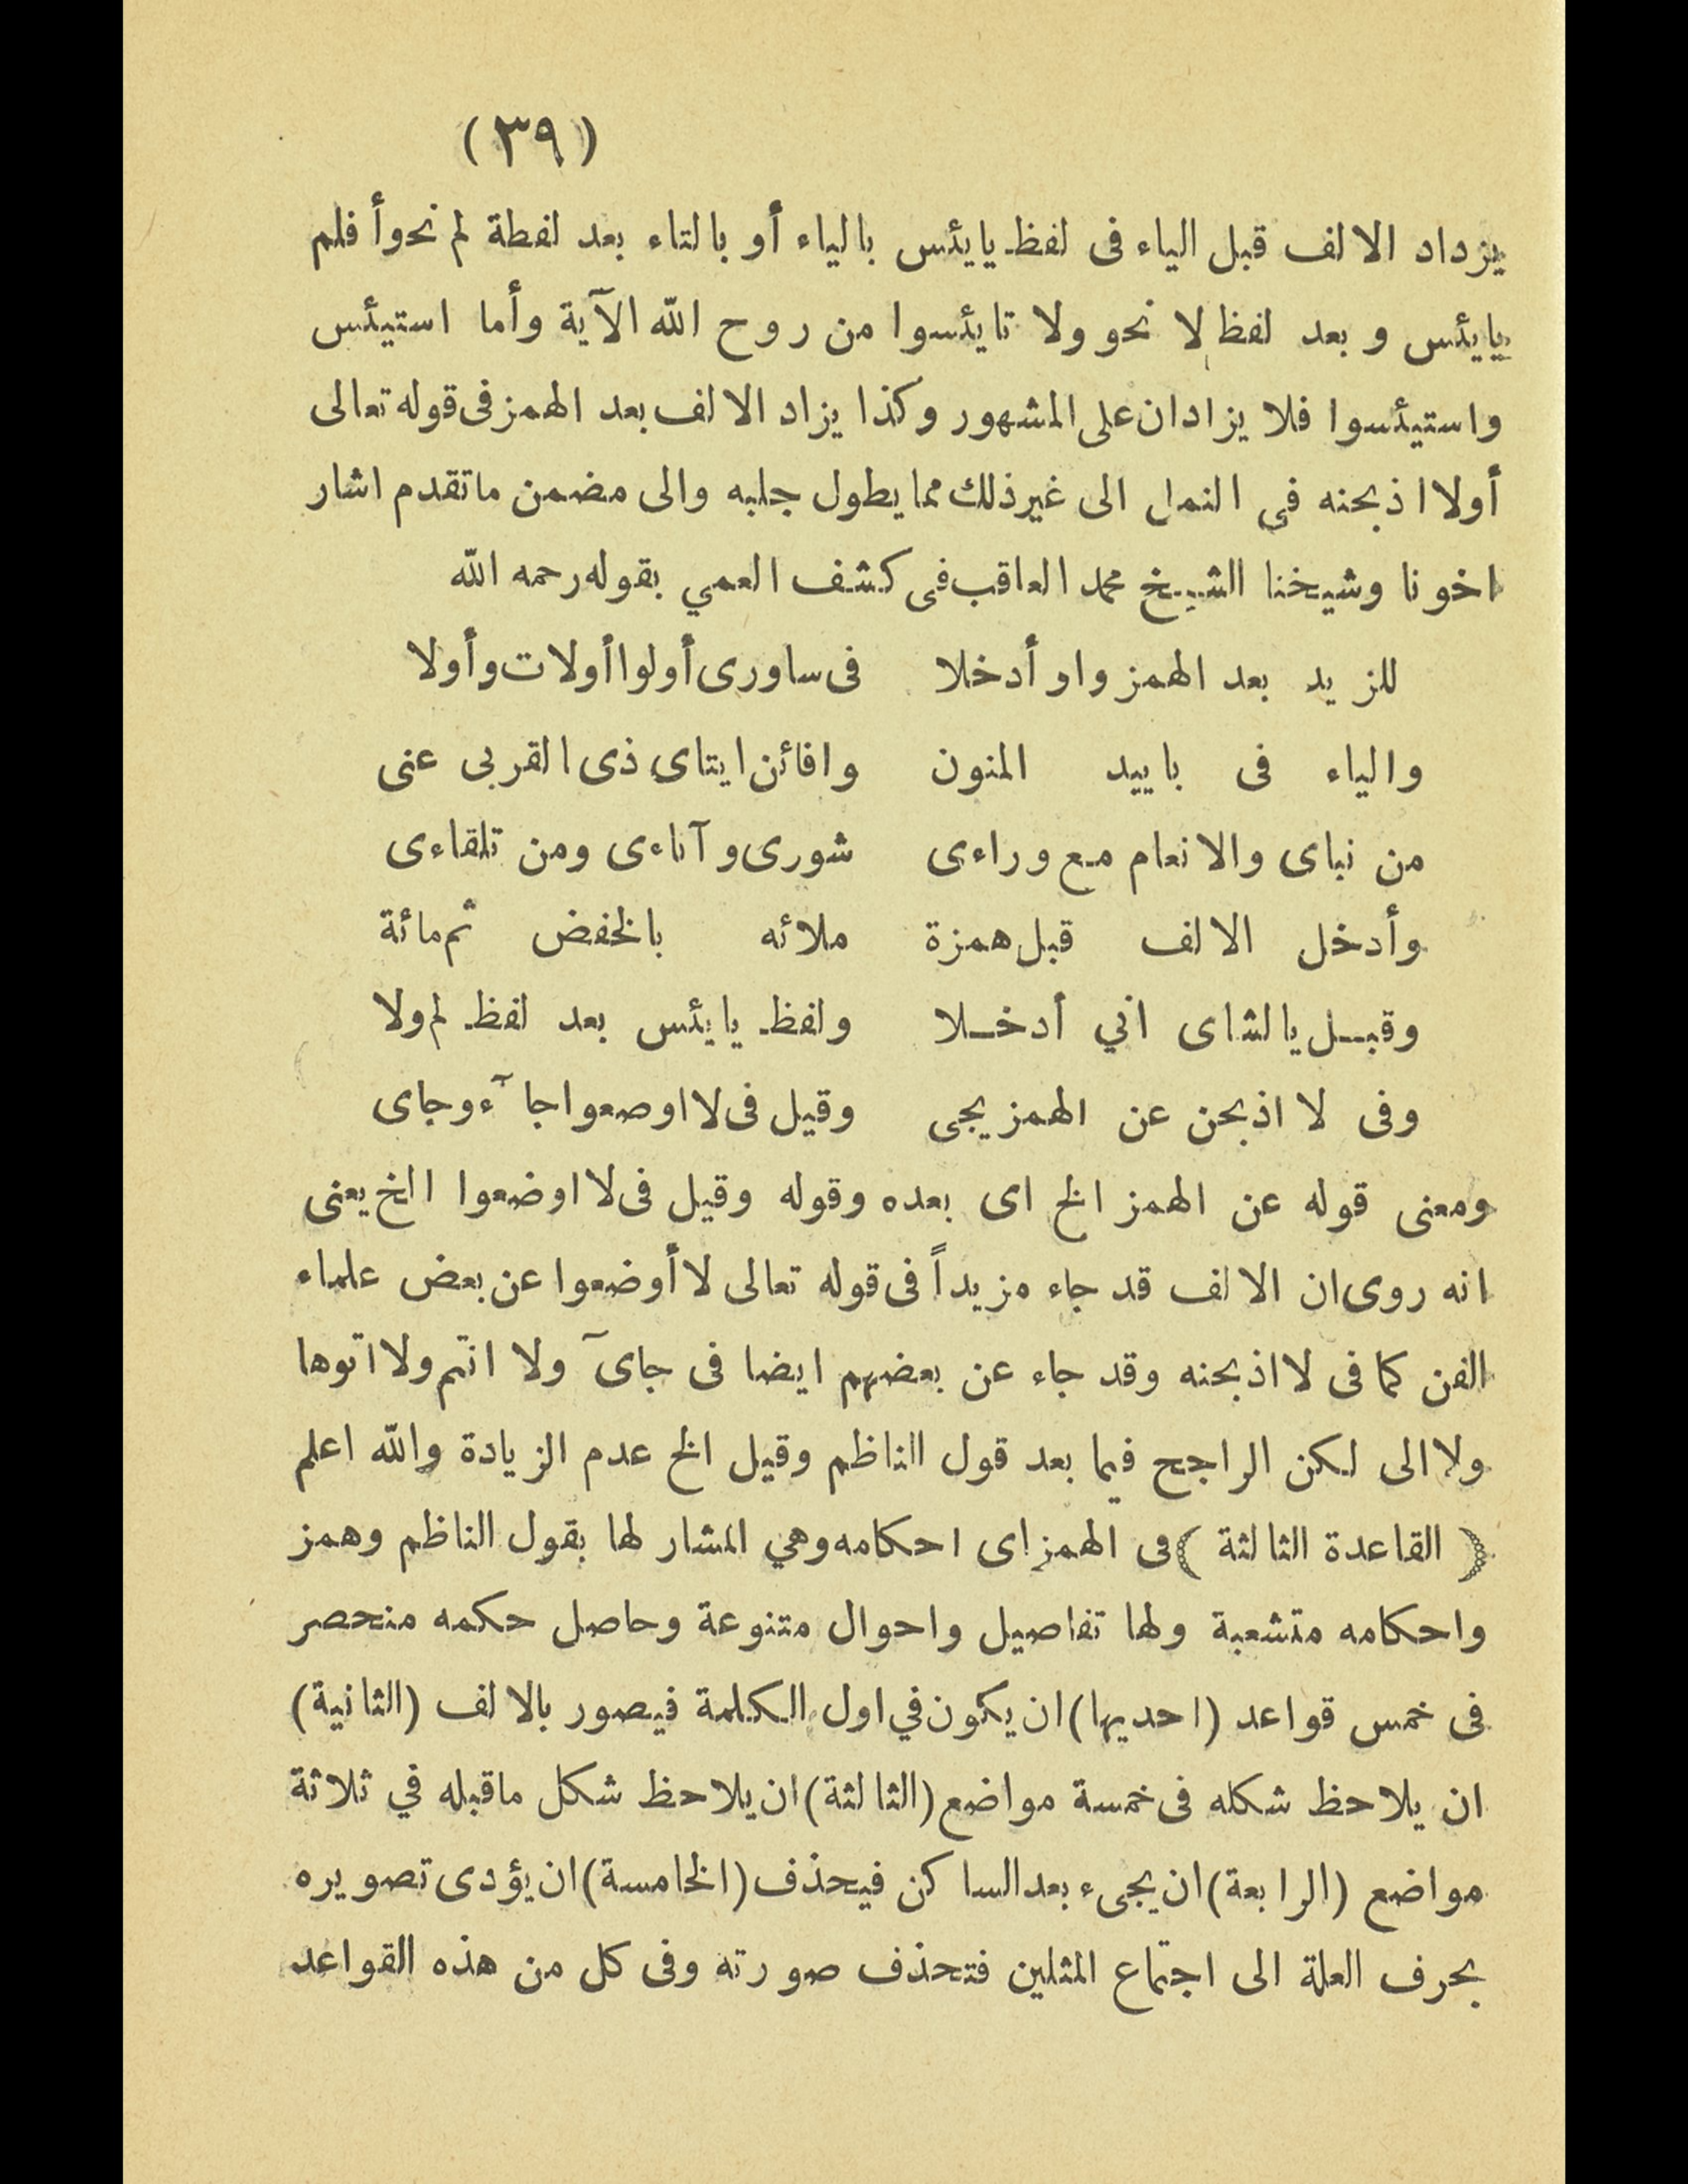 (٣٩)
يزداد الالف قبل الياء فى لفظ يايئس بالياء أو بالتاء بعد لفظة لم نحو أفلم
يايئس وبعد لفظ لا نحو ولا تايئسوا من روح الله الآية وأما استيئس
واستيئسوا فلا يزادان على المشهور وكذا يزاد الالف بعد الهمز فى قوله تعالى
أولا اذبحنه فى النمل الى غير ذلك مما يطول جلبه والى مضمن ماتقدم اشار
اخونا وشيخنا الشيخ محمد العاقب فى كشف العمي بقوله رحمه الله
للزيد بعد الهمز واو أدخلا فى ساورى أولوا أولات وأولا
والياء فى باييد المنون وافائن ايتاى ذى القربى عنى
من نباى والانعام مع وراءى شورى و آناءى ومن تلقاءى
وأدخل الالف قبل همزة ملائه بالخفض ثم مائة
وقبل يا لشاى اني أدخلا ولفظ يايئس بعد لفظ لم ولا
وفى لا اذبحن عن الهمز يجى وقيل فى لا اوصعوا جآء وجاى
ومعنى قوله عن الهمز الخ اى بعده وقوله وقيل فى لا اوضعوا الخ يعنى
انه روى ان الالف قد جاء مزيداً فى قوله تعالى لا أوضعوا عن بعض علماء
الفن كما فى لا اذبحنه وقد جاء عن بعضهم ايضا فى جاىٓ ولا انتم ولا اتوها
ولا الى لكن الراجح فيما بعد قول الناظم وقيل الخ عدم الزيادة والله اعلم
( القاعدة الثالثة ) فى الهمز اى احكامه وهي المشار لها بقول الناظم وهمز
واحكامه متشعبة ولها تفاصيل واحوال متنوعة وحاصل حكمه منحصر
فى خمس قواعد (احديها) ان يكون في اول الكلمة فيصور بالالف (الثانية)
ان يلاحظ شكله فى خمسة مواضع (الثالثة) ان يلاحظ شكل ماقبله في ثلاثة
مواضع (الرابعة) ان يجىء بعد الساكن فيحذف (الخامسة) ان يؤدى تصويره
بحرف العلة الى اجتماع المثلين فتحذف صورته وفى كل من هذه القواعد